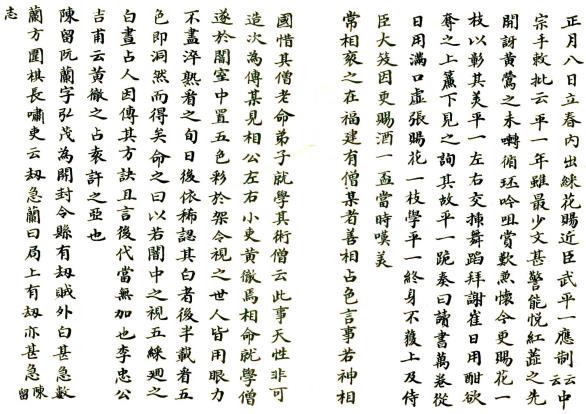 正月八日立春內出綵花賜近臣武平一應制云云中
宗手敕批云平一年雖最少文甚警能悅紅蕋之先
開訝黃鶯之未囀循環吟咀賞歎兼懷今更賜花一
枝以彰其美平一左右交揷舞蹈拜謝崔日用酣欲
奪之上簾下見之詢其故平一跪奏曰讀書萬卷從
日用滿口虛張賜花一枝學平一終身不獲上及侍
臣大笑因更賜酒一盃當時嘆美
常相袞之在福建有僧某者善相占色言事若神相
國惜其僧老命弟子就學其術僧云此事天性非可
造次為傳某見相公左右小吏黃徹焉相命就學僧
遂於闇室中置五色彩於架令視之世人皆用眼力
不盡淬熟看之旬日後依稀認其白者後半載看五
色即洞然而得矣命之曰以若闇中之視五綵廻之
白晝占人因傳其方訣且言後代當無加也李忠公
吉甫云黃徹之占袁許之亞也
陳留阮蘭字弘茂為開封令縣有刼賊外白甚急數
蘭方圍棋長嘯吏云刼急蘭曰局上有刼亦甚急陳留
志